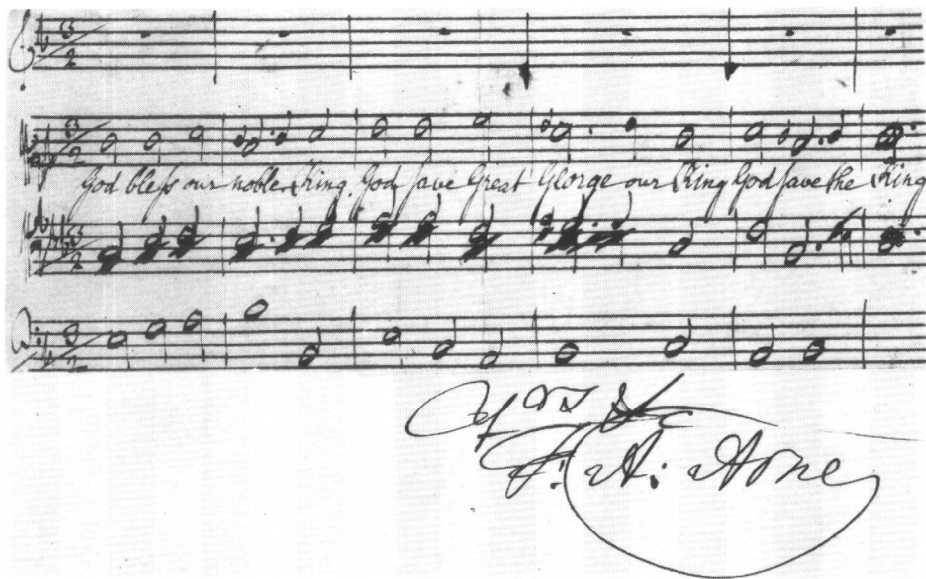 God bless our noble King, God save Great George our King God save the King
T: A: Arne